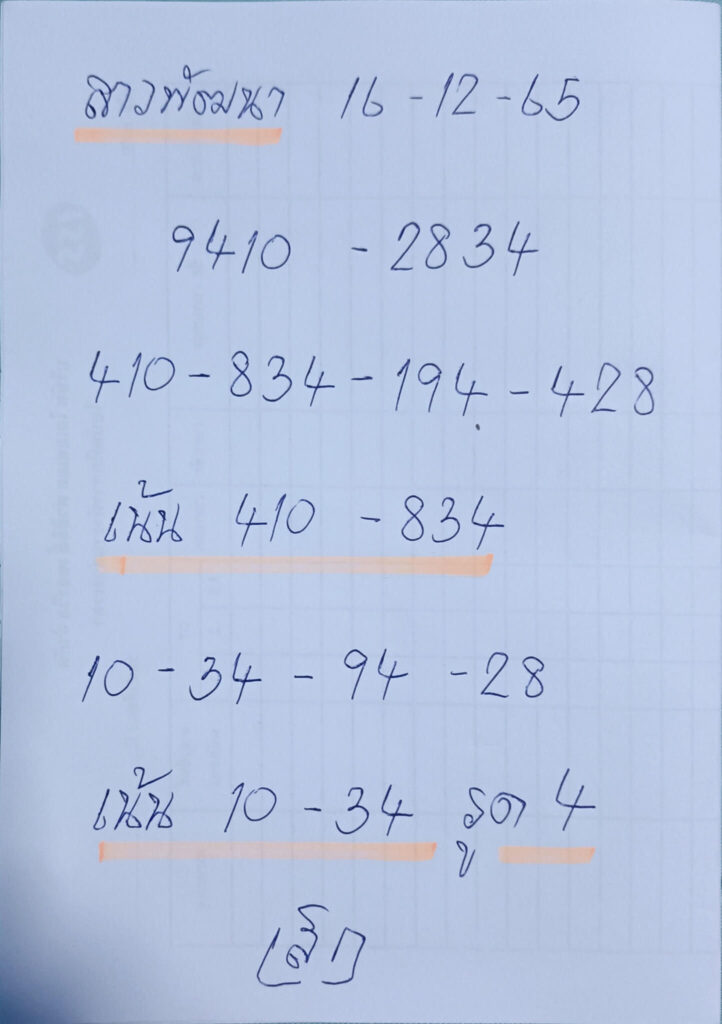 สาวพัฒนา 16-12-65
9410 - 2834
410 - 834 - 194 - 428
เน้น 410 - 834
10 - 34 - 94 - 28
เน้น 10 - 34 รูด 4